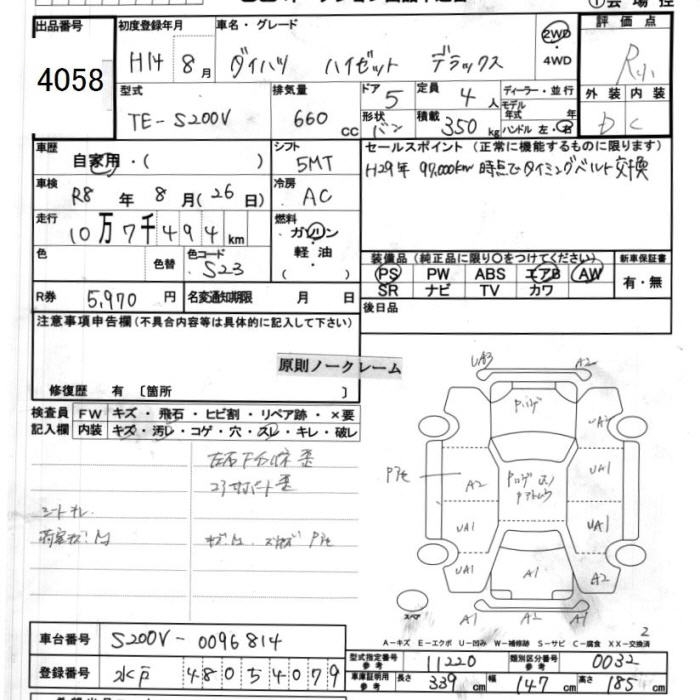 出品番号 初度登録年月 車名・グレード 評価点
4058 H14 8月 ダイハツ ハイゼット デラックス 2WD ・4WD
型式 排気量 ドア 定員 ディーラー・並行 外装 内装
TE-S200V 660 cc 5 4人 モデル年式 年 D C
形状 バン 積載 350 kg ハンドル 左・右
車歴 自家用・( ) シフト 5MT セールスポイント(正常に機能するものに限ります)
車検 R8 年 8 月(26 日) 冷房 AC H29年 97,000km 時点でタイミングベルト交換
走行 10万7千494 km 燃料 ガソリン・軽油・( )
色 色替 色コード S23 装備品(純正品に限り○をつけてください) 新車保証書
PS PW ABS エアB AW 有・無
SR ナビ TV カワ
R券 5,970 円 名変通知期限 月 日 後日品
注意事項申告欄(不具合内容等は具体的に記入して下さい)
原則ノークレーム
修復歴 有 〔箇所 〕
検査員記入欄 FW キズ・飛石・ヒビ割・リペア跡・×要
内装 キズ・汚レ・コゲ・穴・スレ・キレ・破レ
コアサポート歪
UA3 A2
UA2
A2 UA1
UA1 UA1
UA1 A1 A2
スペア A1 A2 A1
2
A-キズ E-エクボ U-凹み W-補修跡 S-サビ C-腐食 XX-交換済
車台番号 S200V-0096814
登録番号 水戸 480 5 4079
型式指定番号 参考 11220 類別区分番号 参考 0032
車庫証明用 参考 長さ 339 cm 幅 147 cm 高さ 185 cm